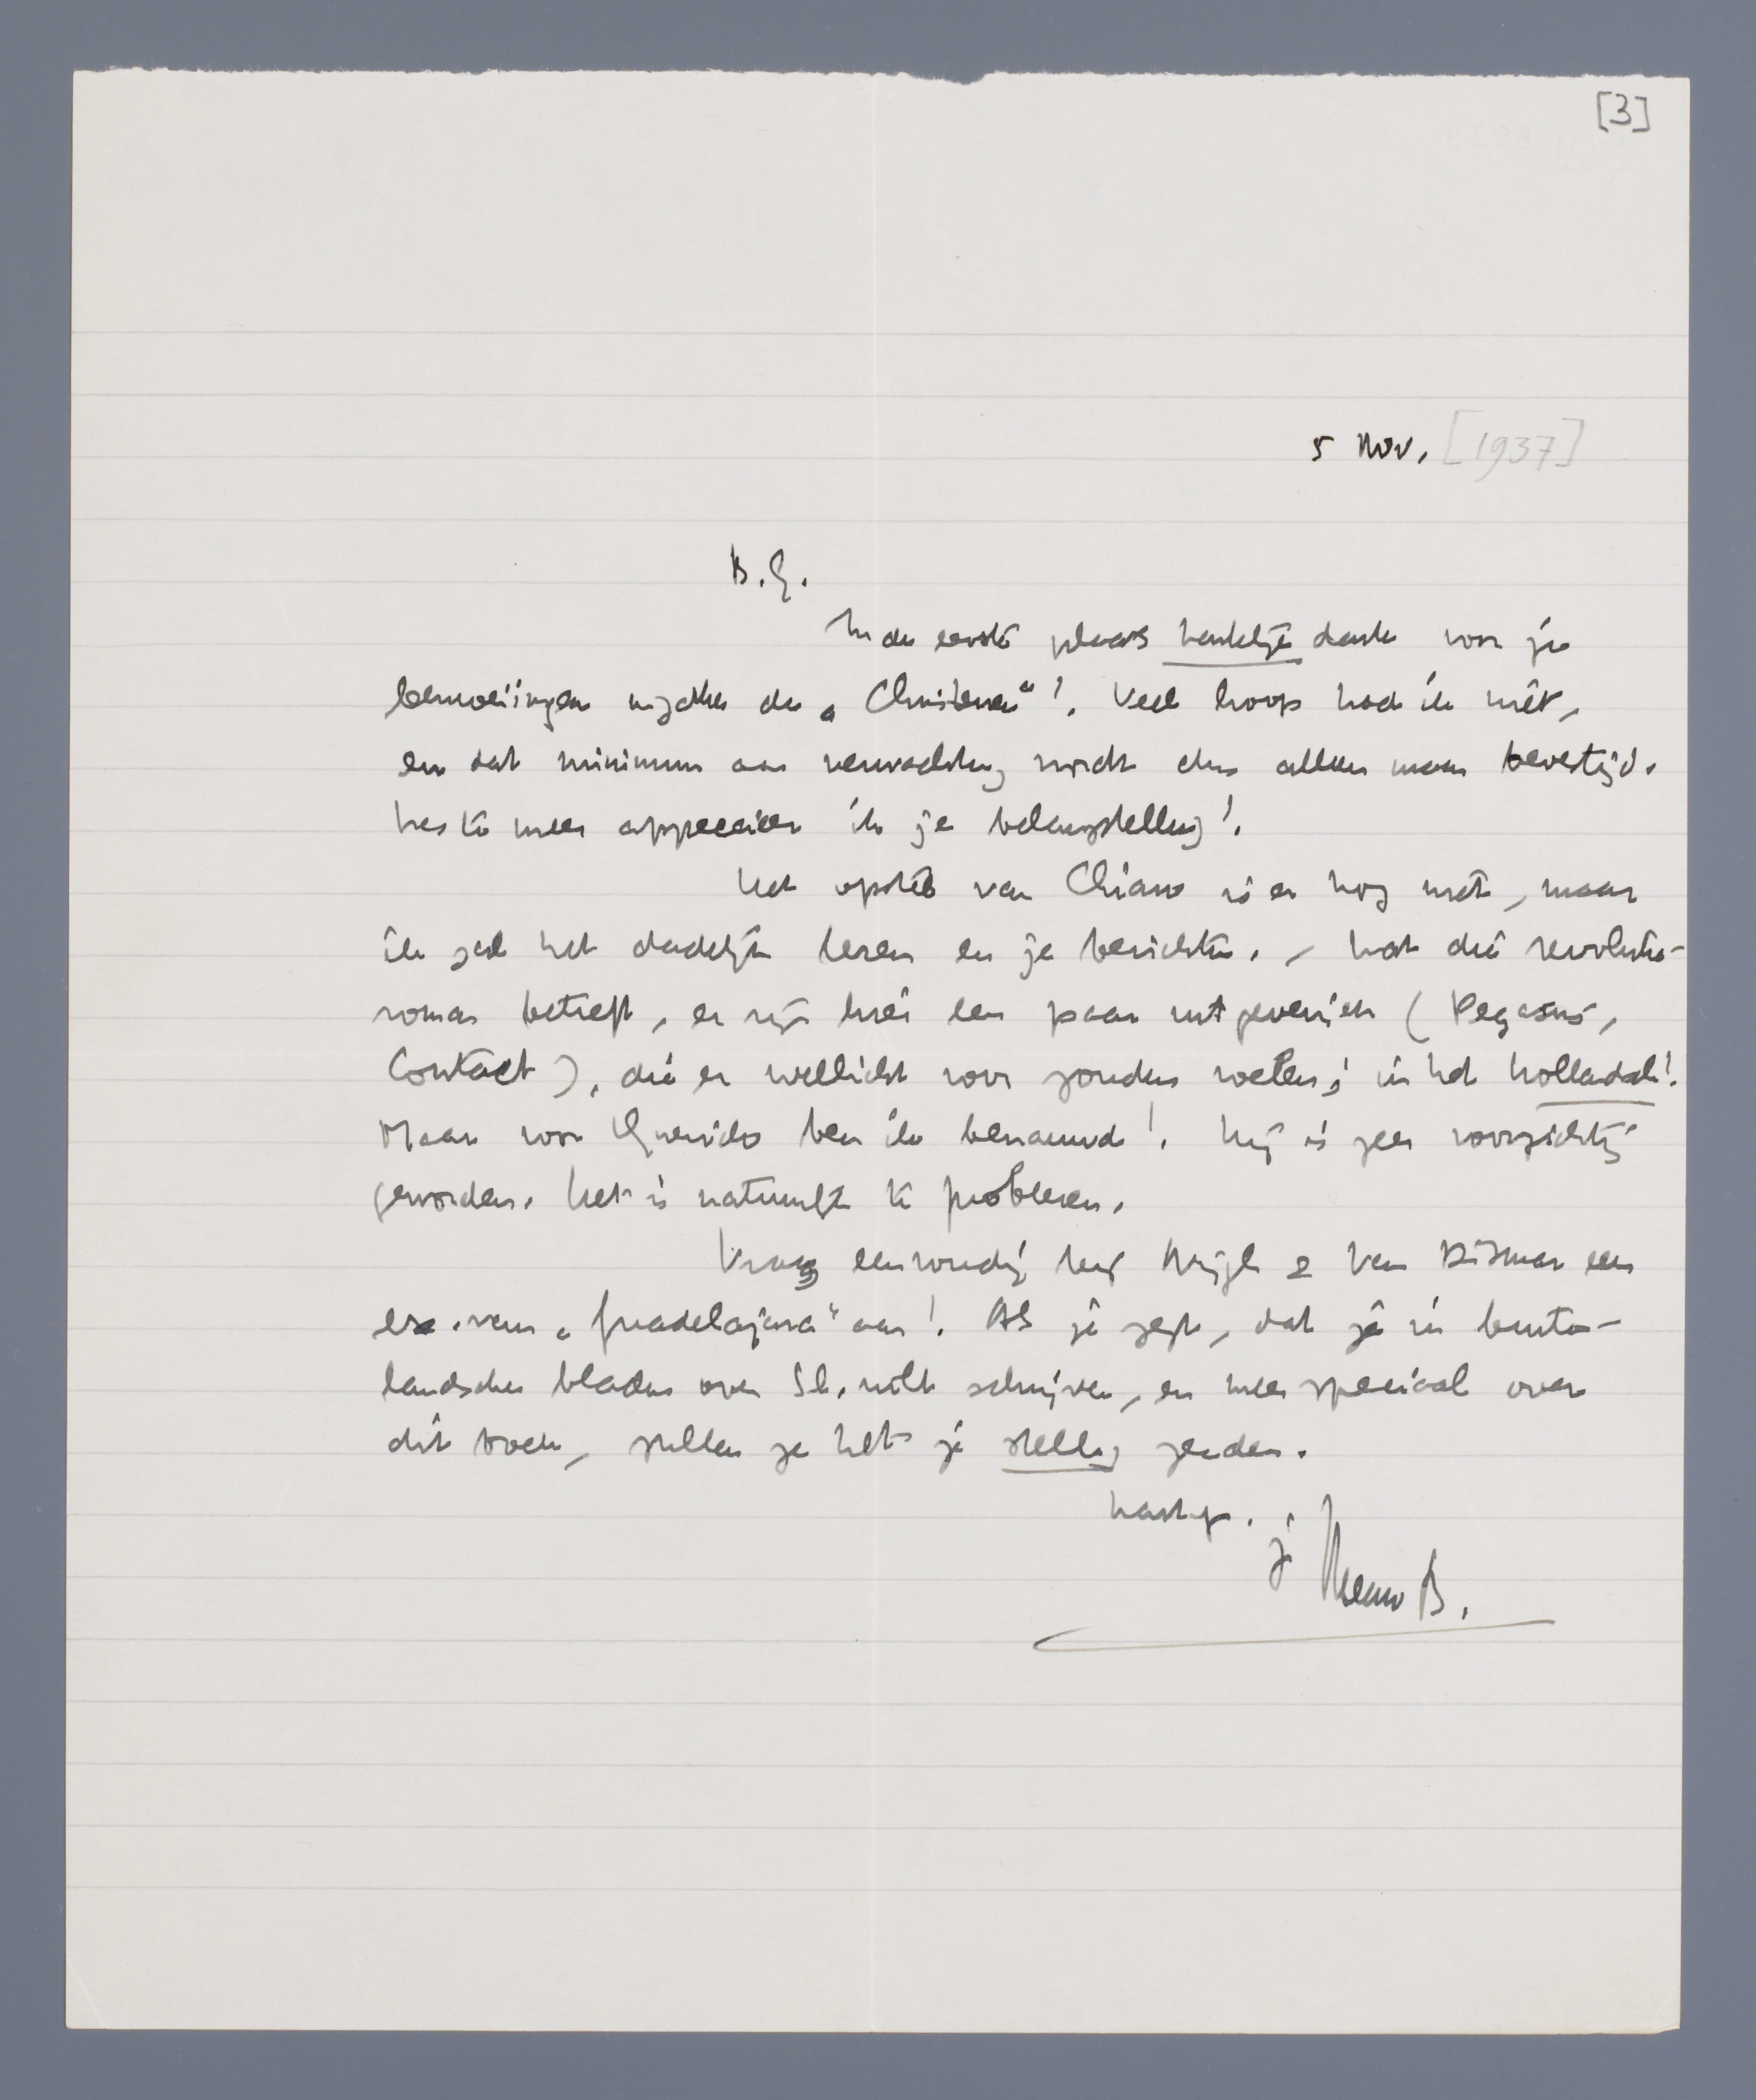 [3]
5 Nov. [1937]
B.G.
In de eerste plaats hartelijk dank voor je
bemoeiingen inzake de „Christenen"! Veel hoop had ik niet,
en dat minimum aan verwachting wordt dus alleen maar bevestigd.
Des te meer apprecieer ik je belangstelling!
Het opstel van Chiaro is er nog niet, maar
ik zal het dadelijk lezen en je berichten. – Wat die revolutie-
roman betreft, er zijn hier een paar uitgeverijen (Pegasus,
Contact), die er wellicht voor zouden voelen; in het hollandsch!
Maar voor Querido ben ik benauwd! Hij is zeer voorzichtig
geworden. Het is natuurlijk te probeeren.
Vraag eenvoudig bij Nijgh & Van Ditmar een
ex. van „Guadelajara" aan! Als je zegt, dat je in buiten-
landsche bladen over Sl. wilt schrijven, en meer speciaal over
dit boek, zullen ze het je stellig zenden.
hartelijk.
je Menno B.